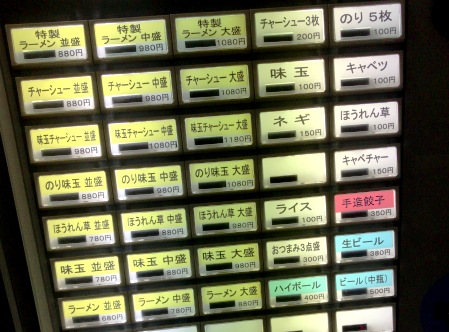 特製
ラーメン 並盛
880円
特製
ラーメン 中盛
980円
特製
ラーメン 大盛
1080円
チャーシュー3枚
200円
のり5枚
100円
チャーシュー 並盛
880円
チャーシュー 中盛
980円
チャーシュー 大盛
1080円
味玉
100円
キャベツ
100円
味玉チャーシュー 並盛
980円
味玉チャーシュー 中盛
1080円
味玉チャーシュー 大盛
1180円
ネギ
150円
ほうれん草
100円
のり味玉 並盛
880円
のり味玉 中盛
980円
のり味玉 大盛
1080円
キャベチャー
150円
ほうれん草 並盛
780円
ほうれん草 中盛
880円
ほうれん草 大盛
980円
ライス
100円
手造餃子
350円
味玉 並盛
780円
味玉 中盛
880円
味玉 大盛
980円
おつまみ3点盛
300円
生ビール
380円
ラーメン 並盛
680円
ラーメン 中盛
780円
ラーメン 大盛
880円
ハイボール
400円
ビール(中瓶)
500円